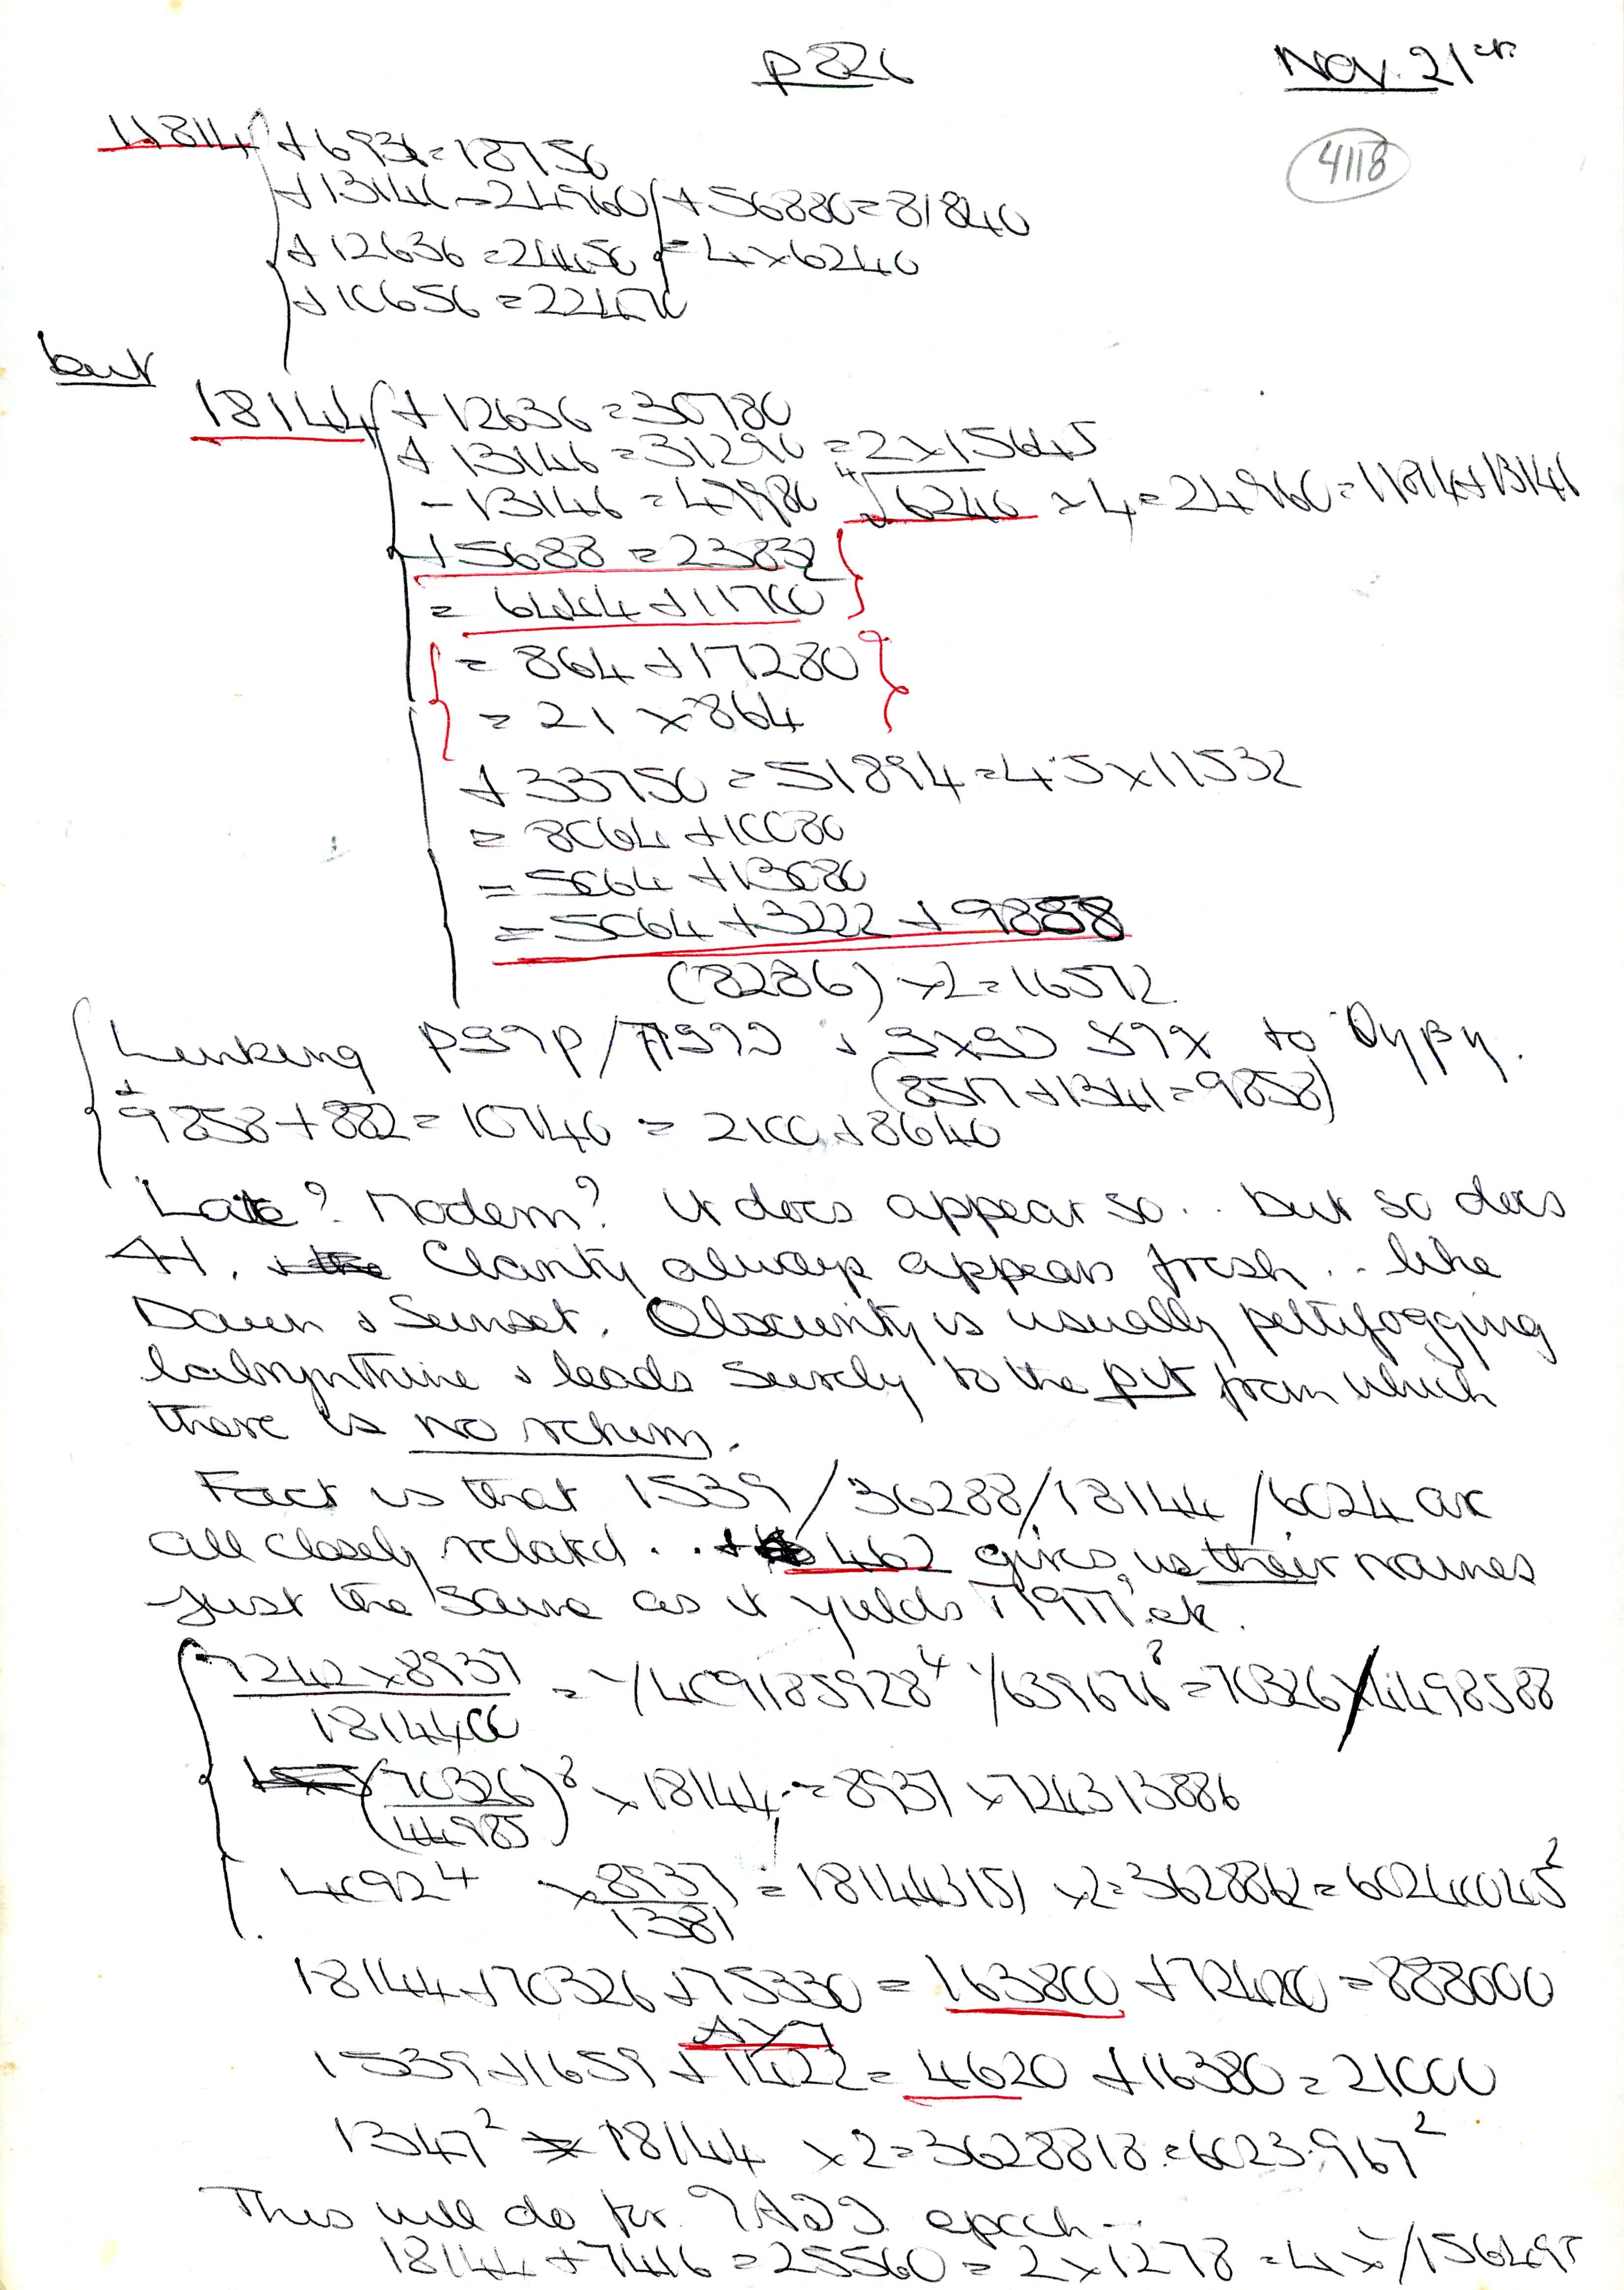 p 826
Nov. 21st
4118
11814 + 6936 = 18750
+ 13146 = 24960 + 56880 = 81840
+ 12636 = 24450 = 4 × 6240
+ 10656 = 22470
but
18144 + 12636 = 30780
+ 13146 = 31290 = 2 × 15645
- 13146 = 4998 6240 × 4 = 24960 = 11814 + 13146
+ 5688 = 23832
= 6444 + 11700
= 864 + 17280
= 21 × 864
+ 33750 = 51894 = 4.5 × 11532
= 8064 + 10080
= 5064 + 13080
= 5064 + 3222 + 9858
(8286) × 2 = 16572
Linking to
(8517 + 1341 = 9858)
9858 + 882 = 10740 = 2100 + 8640
Late? Modern? It does appear so .. but so does
Clarity always appears fresh .. like
Dawn & Sunset. Obscurity is usually pettifogging
labrynthine & leads surely to the pit from which
there is no return.
Fact is that 1539 / 36288 / 18144 / 6024 are
all closely related . . 462 gives us their names
just the same as it yields etc.
7242 × 8937 = √409185928⁴ √639676⁸ = 70326 / 4498588
1814400
(70326)⁸ × 18144 = 8937 × 724313886
44985
4092⁴ × 8937 = 181443151 × 2 = 3628862 = 60240045²
1381
18144 + 70326 + 75330 = 163800 + 72420 = 888000
1539 + 1659 + 1422 = 4620 + 16380 = 21000
1347² 18144 × 2 = 3628818 = 6023.967²
This will do for epoch ...
18144 + 7416 = 25560 = 2 × 1278 = 4 × √156495